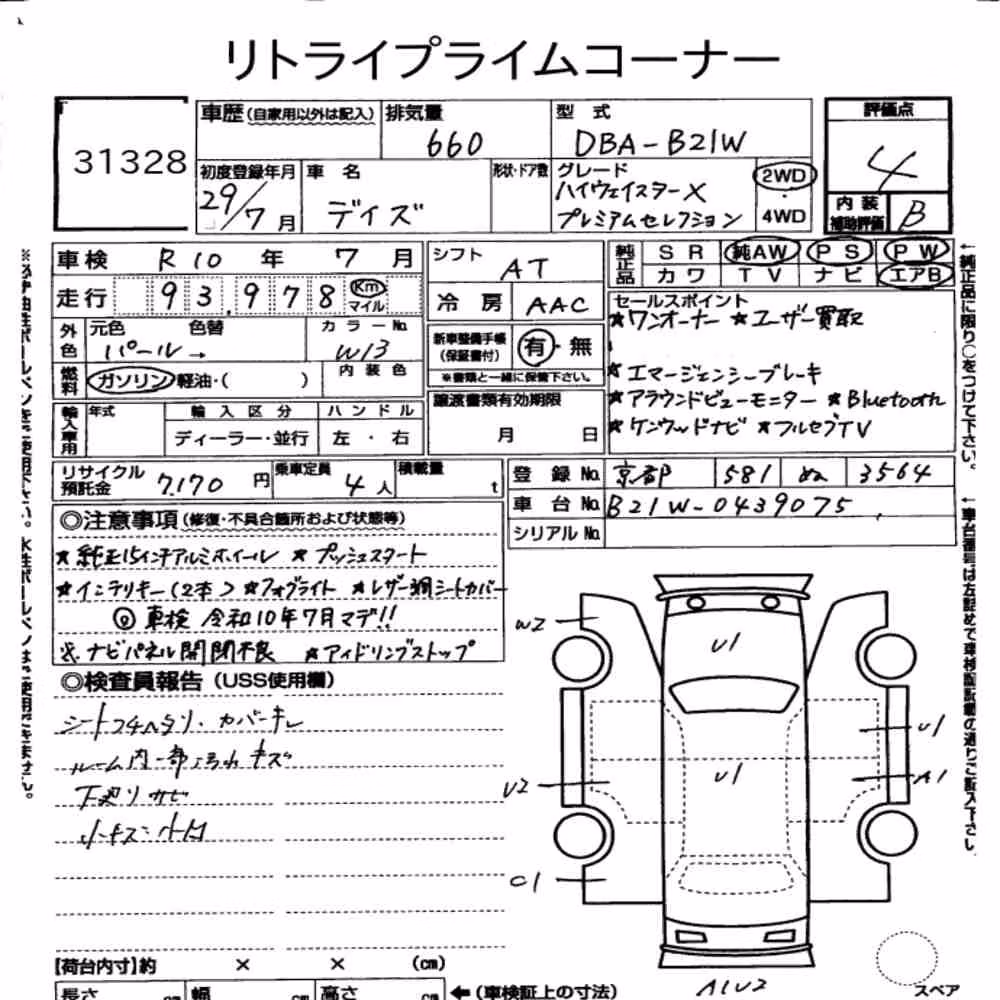 リトライプライムコーナー
31328
車歴 (自家用以外は記入) 排気量 660
型式 DBA-B21W
評価点 4
内装補助評価 B
初度登録年月 29/7月
車名 デイズ
形状・ドア数
グレード ハイウェイスターX
プレミアムセレクション
2WD・4WD
車検 R10年 7月
シフト AT
純正品 SR 純AW PS PW
カワ TV ナビ エアB
走行 93,978 Km マイル
冷房 AAC
外色 元色 色替 パール→
カラーNo. W13
内装色
燃料 ガソリン 軽油・( )
新車整備手帳(保証書付) 有・無
※書類と一緒に保管下さい。
セールスポイント
★ワンオーナー ★ユーザー買取
★エマージェンシーブレーキ
★アラウンドビューモニター ★Bluetooth
★ケンウッドナビ ★フルセグTV
輸入車用 年式 輸入区分 ハンドル
ディーラー・並行 左・右
譲渡書類有効期限
月 日
リサイクル預託金 7,170円
乗車定員 4人
積載量 t
登録No. 京都 581 ぬ 3564
車台No. B21W-0439075
シリアルNo.
◎注意事項(修復・不具合箇所および状態等)
★純正15インチアルミホイール ★プッシュスタート
★インテリキー(2本) ★フォグライト ★レザー調シートカバー
◎車検 令和10年7月マデ!!
※ナビパネル開閉不良 ★アイドリングストップ
◎検査員報告(USS使用欄)
ルーム内一部 キズ
下廻りサビ
W2
U1
U1
U1
U2
A1
C1
A1U2
【荷台内寸】約 × × (cm)
長さ cm 幅 cm 高さ cm ←(車検証上の寸法)
スペア
←純正品に限り○をつけて下さい。
←車台番号は左詰めで車検証記載の通りご記入下さい